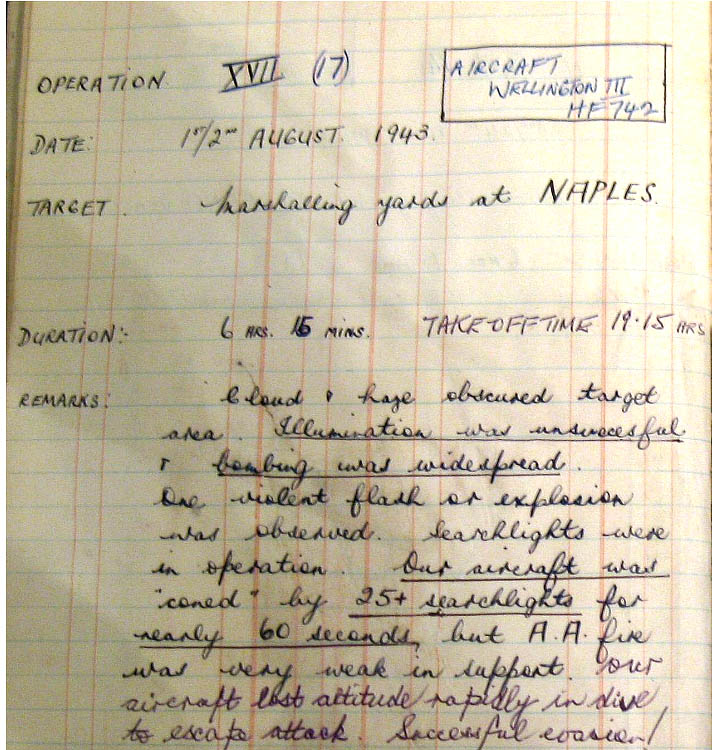 OPERATION XVII (17)
AIRCRAFT
WELLINGTON III
HF742
DATE: 1st/2nd AUGUST. 1943.
TARGET. Marshalling yards at NAPLES.
DURATION:- 6 HRS. 15 MINS. TAKE-OFF TIME 19.15 HRS
REMARKS: Cloud & haze obscured target
area. Illumination was unsuccesful
& bombing was widespread.
One violent flash or explosion
was observed. Searchlights were
in operation. Our aircraft was
"coned" by 25+ searchlights for
nearly 60 seconds, but A.A. fire
was very weak in support. Our
aircraft lost altitude rapidly in dive
to escape attack. Successful evasion!